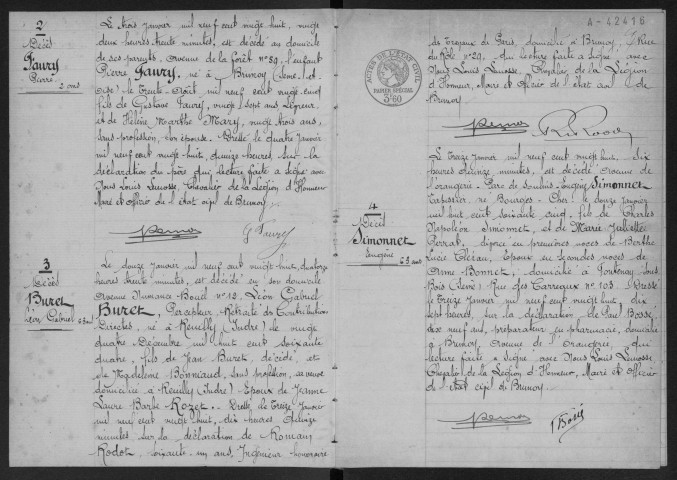 2
Décès
Faury
Pierre
2 ans
Le trois janvier mil neuf cent vingt huit, vingt
deux heures trente minutes, est décédé au domicile
de ses parents, avenue de la forêt n° 29, l'enfant
Pierre Faury, né à Brunoy (Seine-et-
Oise) le trente août mil neuf cent vingt cinq
fils de Gustave Faury, vingt sept ans,
et de Hélène Marthe Mary, vingt trois ans,
sans profession, son épouse. Dressé le quatre janvier
mil neuf cent vingt huit, quinze heures, sur la
déclaration du père qui lecture faite a signé avec
Nous Louis Lavosse, Chevalier de la Légion d'Honneur
Maire et officier de l'état civil de Brunoy.
G Faury
3
Décès
Buret
Léon Gabriel
63 ans
Le douze janvier mil neuf cent vingt huit, quatorze
heures trente minutes, est décédé en son domicile
avenue n° 12, Léon Gabriel
Buret, Percepteur Retraité des Contributions
Directes, né à Reuilly (Indre) le vingt
quatre Décembre mil huit cent soixante
quatre, fils de Jean Buret décédé, et
de Magdeleine Bonniaud, sans profession, sa veuve
domiciliée à Reuilly (Indre) Epoux de Jeanne
Laure Barbe Rozet. Dressé le treize janvier
mil neuf cent vingt huit, dix heures quinze
minutes sur la déclaration de Romain
Rodot, soixante un ans, Ingénieur honoraire
A-42416
ACTES DE L'ETAT CIVIL
PAPIER SPÉCIAL
3F60
de Paris, domicilié à Brunoy, Rue
du Rôle n° 29, qui lecture faite a signé avec
Nous Louis Lavosse, Chevalier de la Légion
d'Honneur, Maire et officier de l'état civil de
Brunoy.
4
Décès
Simonnet
Eugène
63 ans
Le treize janvier mil neuf cent vingt huit, dix
heures quinze minutes, est décédé avenue de
l'orangerie, Parc de Soulins Eugène Simonnet
Tapissier, né Bourges Cher le douze janvier
mil huit cent soixante cinq, fils de Charles
Napoléon Simonnet et de Marie Juliette
Perrat, divorcé en premières noces de Berthe
Lucie Cléran, Epoux en secondes noces de
Anne Bonnet, domicilié à Fontenay sous
Bois (Seine) Rue des Carreaux n° 103. Dressé
le treize janvier mil neuf cent vingt huit, dix
sept heures, sur la déclaration de Paul Bosse
dix neuf ans, préparateur en pharmacie, domicilié
à Brunoy, avenue de l'orangerie, qui
lecture faite a signé avec Nous Louis Lavosse
Chevalier de la Légion d'Honneur, Maire et officier
de l'état civil de Brunoy.